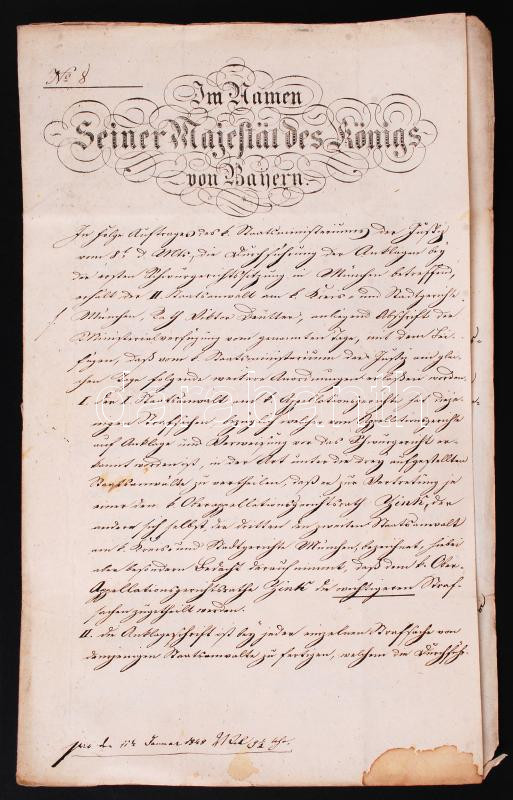 No 8
Im Namen
Seiner Majestät des Königs
von Bayern.
In Folge Auftrages des k. Staatsministeriums der Justiz
vom 8t d Mts, die Durchführung der Anklagen bey
die ersten Schwurgerichtssitzung in München betreffend,
erhält der II. Staatsanwalt am k. Kreis- und Stadtgerichte
München, anliegend Abschrift der
Ministerialverfügung vom genannten Tage, mit dem Bei-
fügen, daß vom k. Staatsministerium der Justiz am glei-
chen Tage folgende weitere Anordnungen worden.
I. Der I. Staatsanwalt am k. Appellationsgerichte hat dieje-
nigen Strafsachen, bezüglich welcher vom Appellationsgerichte
auf Anklage und Verweisung vor das Schwurgericht er-
kannt worden ist, in der Art unter die drey aufgestellten
Staatsanwälte zu vertheilen, daß er zur Vertretung je
einer den k. Oberappellationsgerichtsrath Zink, der
andern sich selbst, der dritten den zweiten Staatsanwalt
am k. Kreis- und Stadtgerichte München, bezeichnet, hiebei
aber besondern Bedacht darauf nimmt, daß dem k. Ober-
Appellationsgerichtsrathe Zink die wichtigeren Straf-
sachen zugetheilt werden.
II. die Anklageschrift ist bey jeder einzelnen Strafsache von
demjenigen Staatsanwalte zu fertigen, welchem die Durchfüh-
Januar
darabanth